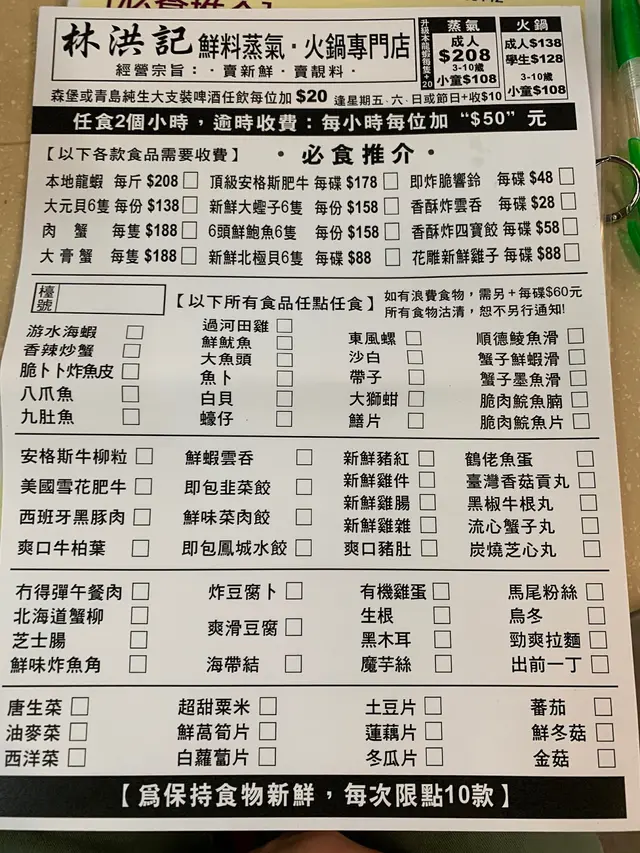 林洪記 鮮料蒸氣·火鍋專門店
經營宗旨：·賣新鮮·賣靚料·
升級本龍蝦每隻+20
蒸氣
成人
$208
3-10歲
小童$108
火鍋
成人$138
學生$128
3-10歲
小童$108
森堡或青島純生大支裝啤酒任飲每位加 $20 逢星期五、六、日或節日+收$10
任食2個小時，逾時收費：每小時每位加 “$50” 元
【以下各款食品需要收費】 ·必食推介·
本地龍蝦 每斤 $208 頂級安格斯肥牛 每碟 $178 即炸脆響鈴 每碟 $48
大元貝6隻 每份 $138 新鮮大蟶子6隻 每份 $158 香酥炸雲吞 每碟 $28
肉蟹 每隻 $188 6頭鮮鮑魚6隻 每份 $158 香酥炸四寶餃 每碟 $58
大膏蟹 每隻 $188 新鮮北極貝6隻 每碟 $88 花雕新鮮雞子 每碟 $88
檯號 【以下所有食品任點任食】 如有浪費食物，需另+每碟$60元
所有食物沽清，恕不另行通知!
游水海蝦
香辣炒蟹
脆卜卜炸魚皮
八爪魚
九肚魚
過河田雞
鮮魷魚
大魚頭
魚卜
白貝
蠔仔
東風螺
沙白
帶子
大獅蚶
鱔片
順德鯪魚滑
蟹子鮮蝦滑
蟹子墨魚滑
脆肉鯇魚腩
脆肉鯇魚片
安格斯牛柳粒
美國雪花肥牛
西班牙黑豚肉
爽口牛柏葉
鮮蝦雲吞
即包韮菜餃
鮮味菜肉餃
即包鳳城水餃
新鮮豬紅
新鮮雞件
新鮮雞腸
新鮮雞雜
爽口豬肚
鶴佬魚蛋
臺灣香菇貢丸
黑椒牛根丸
流心蟹子丸
炭燒芝心丸
冇得彈午餐肉
北海道蟹柳
芝士腸
鮮味炸魚角
炸豆腐卜
爽滑豆腐
海帶結
有機雞蛋
生根
黑木耳
魔芋絲
馬尾粉絲
烏冬
勁爽拉麵
出前一丁
唐生菜
油麥菜
西洋菜
超甜粟米
鮮萵筍片
白蘿蔔片
土豆片
蓮藕片
冬瓜片
蕃茄
鮮冬菇
金菇
【為保持食物新鮮，每次限點10款】